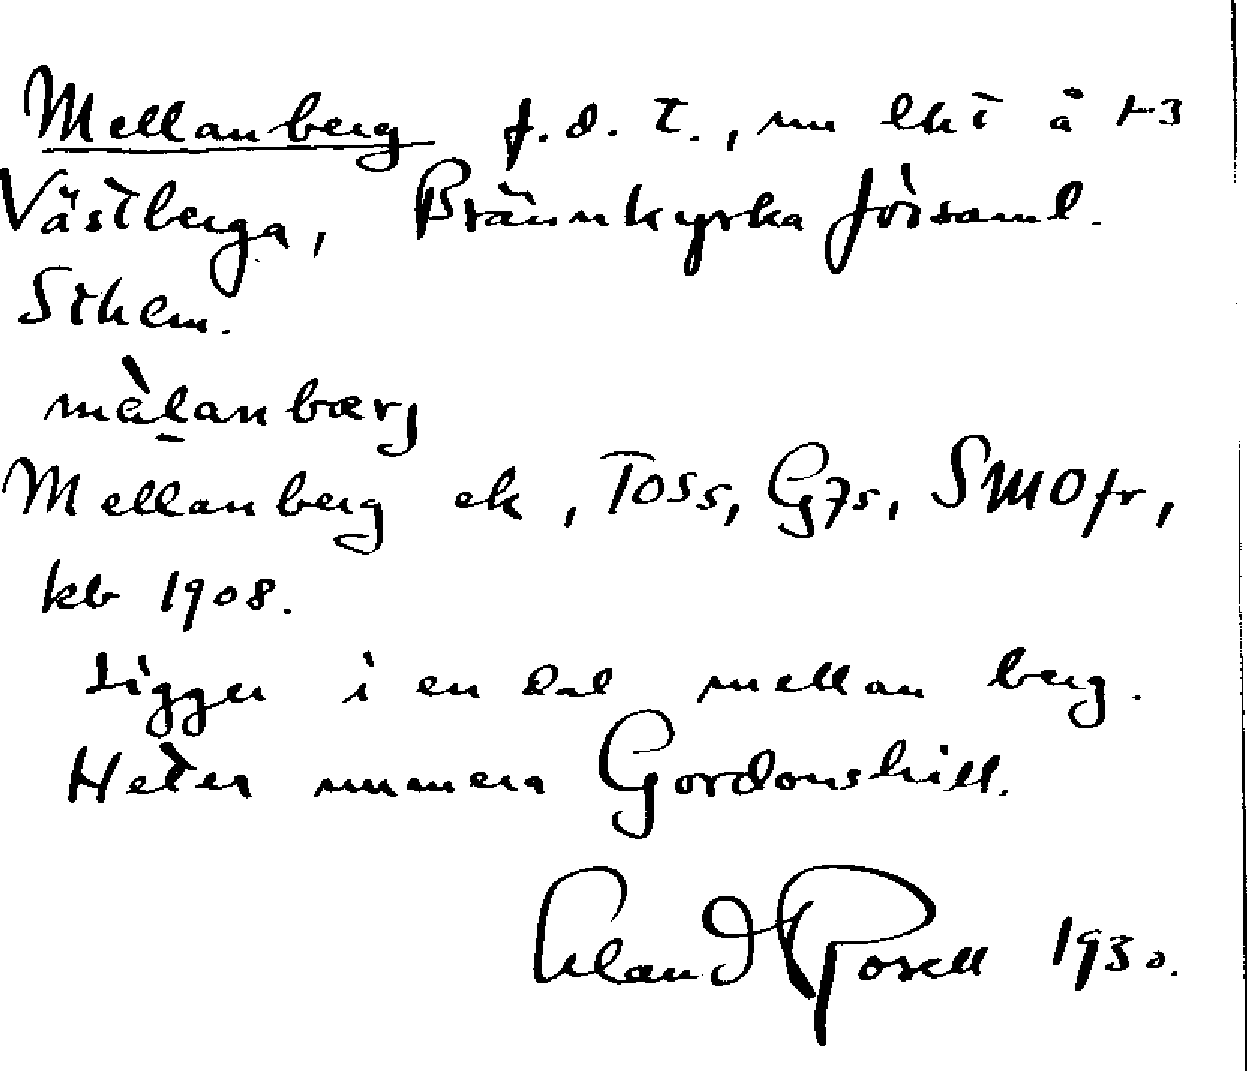 Mellanberg f.d. t., nu lht å 1-3
Västberga, Brännkyrka församl.
Sthlm.
mälanbærj
Mellanberg ek, Toss, G7s, SMOfr,
kb 1908.
Ligger i en dal mellan berg.
Heter numera Gordonshill.
Erland Rosell 1930.